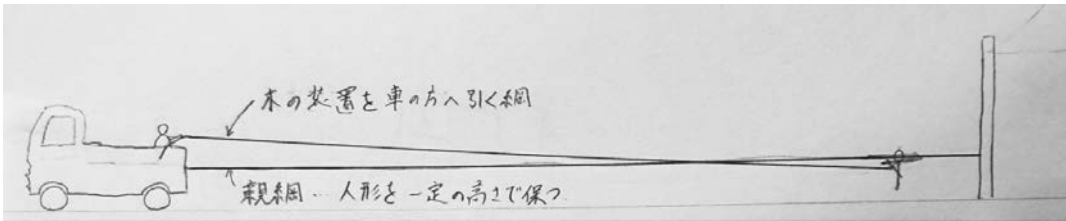 木の装置を車の方へ引く綱
親綱…人形を一定の高さで保つ